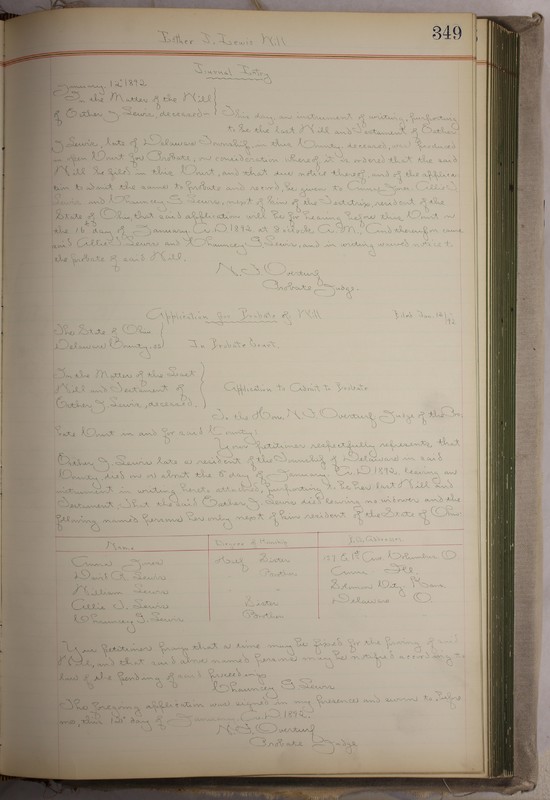 349
Esther J. Lewis Will
Journal Entry
January 12" 1892
In the Matter of the Will
of Esther J. Lewis, deceased
This day an instrument of writing, purporting
to be the last Will and Testament of Esther
J. Lewis, late of Delaware Township in this County, deceased, was produced
in open Court for Probate, in consideration whereof it is ordered that the said
Will be filed in this Court, and that due notice thereof, and of the applica-
tion to admit the same to probate and record, be given to Emma Jones, Allie V.
Lewis and Chauncey G. Lewis, next of kin of the Testatrix, resident of the
State of Ohio, that said application will be for hearing before this Court on
the 16th day of January A.D. 1892, at 8 o'clock A.M., And thereupon came
said Allie V. Lewis and Chauncey G. Lewis, and in writing waived notice to
the probate of said Will.
N. F. Overturf
Probate Judge.
Application for Probate of Will
Filed Jan.
The State of Ohio
Delaware County, ss
In Probate Court.
In the Matter of the Last
Will and Testament of
Esther J. Lewis, deceased.
Application to Admit to Probate
To the Hon. N. F. Overturf, Judge of the Pro-
bate Court in and for said County:
Your petitioner respectfully represents that
Esther J. Lewis late a resident of the Township of Delaware in said
County, died on or about the 5 day of January A.D. 1892, leaving an
instrument in writing, hereto attached, purporting to be her last Will and
Testament. That the said Esther J. Lewis died leaving no widower and the
following named persons her only next of kin resident of the State of Ohio
Name
Degree of Kinship
P.O. Address
Emma Jones Half Sister Ave. Columbus O.
David A. Lewis Brother Ill.
William Lewis " City
Allie V. Lewis Sister Delaware O.
Chauncey G. Lewis Brother
Your petitioner prays that a time may be fixed for the proving of said
Will, and that said above named persons may be notified according to
law of the pending of said proceedings.
Chauncey G. Lewis
The foregoing application was signed in my presence and sworn to before
me, this 12 day of January A.D. 1892
N. F. Overturf
Probate Judge